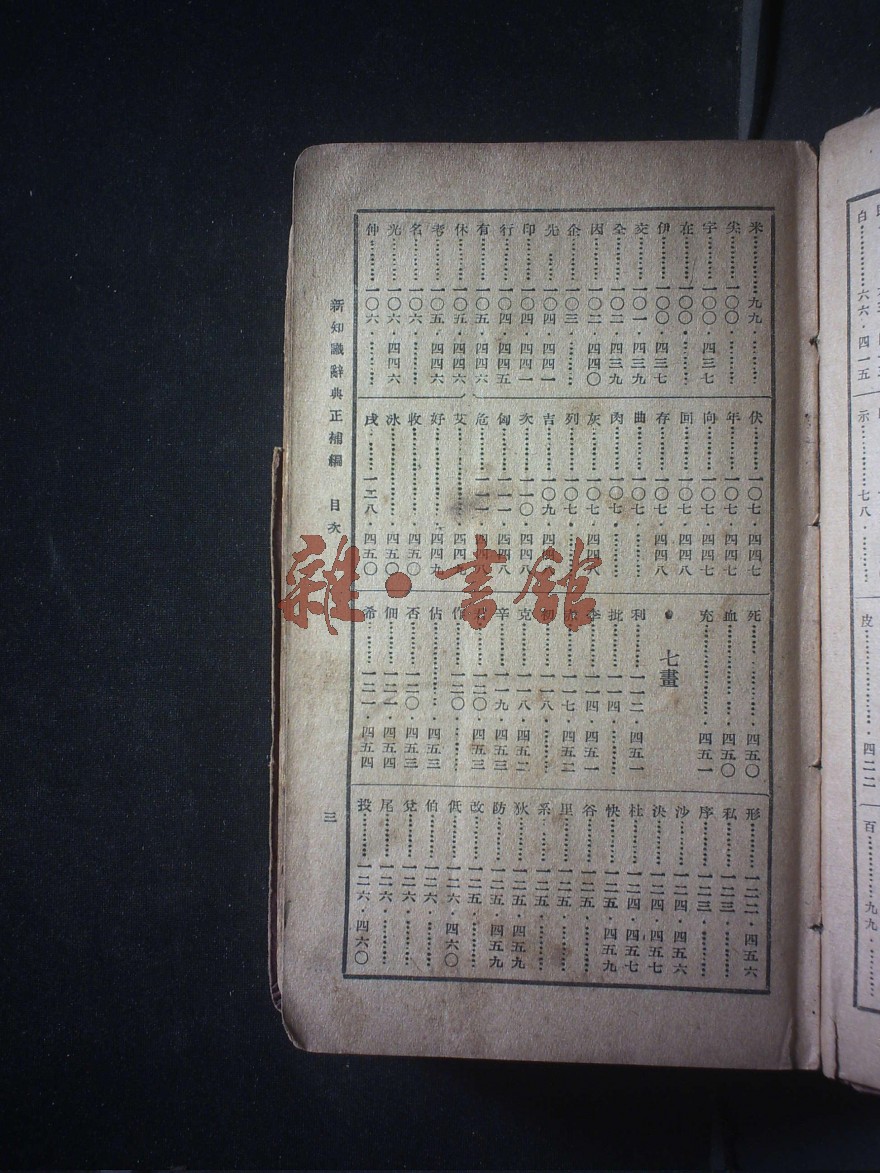 米………九九・………
尖………一〇〇・………
字………一〇〇・四三七
在………一〇〇・………
伊………一〇〇・四三七
交………一〇一・四三九
全………一〇二・四三九
因………一〇二・四四〇
企………一〇三・………
先………一〇四・四四一
印………一〇四・四四一
行………一〇四・四四五
有………一〇五・四四六
休………一〇五・四四六
考………一〇五・四四六
名………一〇六・………
光………一〇六・四四六
仲………一〇六・………
伏………一〇七・四四七
年………一〇七・四四七
向………一〇七・四四七
回………一〇七・四四八
存………一〇七・四四八
曲………一〇七・………
肉………一〇七・………
灰………一〇七・四四八
列………一〇七・………
吉………一〇九・
次………一一〇・四四八
匈………一一一・四四八
危………一一一・四四八
艾………四四九
好………四四九
收………四五〇
冰………四五〇
戌………一二八・四五〇
死………四五〇
血………四五〇
充………四五一
七畫
利………一一二・四五一
批………一一四・………
李………一一四・四五一
一一七・四五二
初………一一八・………
克………一一八・四五二
辛………一一九・四五三
一二〇・四五三
作………一二〇・………
佔………四五三
否………一二〇・四五三
佃………一二一・四五四
希………一二一・四五四
形………一二二・四五六
私………一二三・………
序………一二三・………
沙………一二四・四五六
決………一二四・四五七
杜………一二四・四五七
快………一二五・四五九
谷………一二五・………
里………一二五・………
系………一二五・………
狄………一二五・四五九
防………一二五・四五九
改………一二五・………
低………一二六・四六〇
伯………一二六・………
兌………一二六・………
尾………一二六・………
投………一二六・四六〇
新知識辭典正補編　目次
三
雜・書館
白………六六・四一五
示………七八・
皮………四二二
百………九九・………